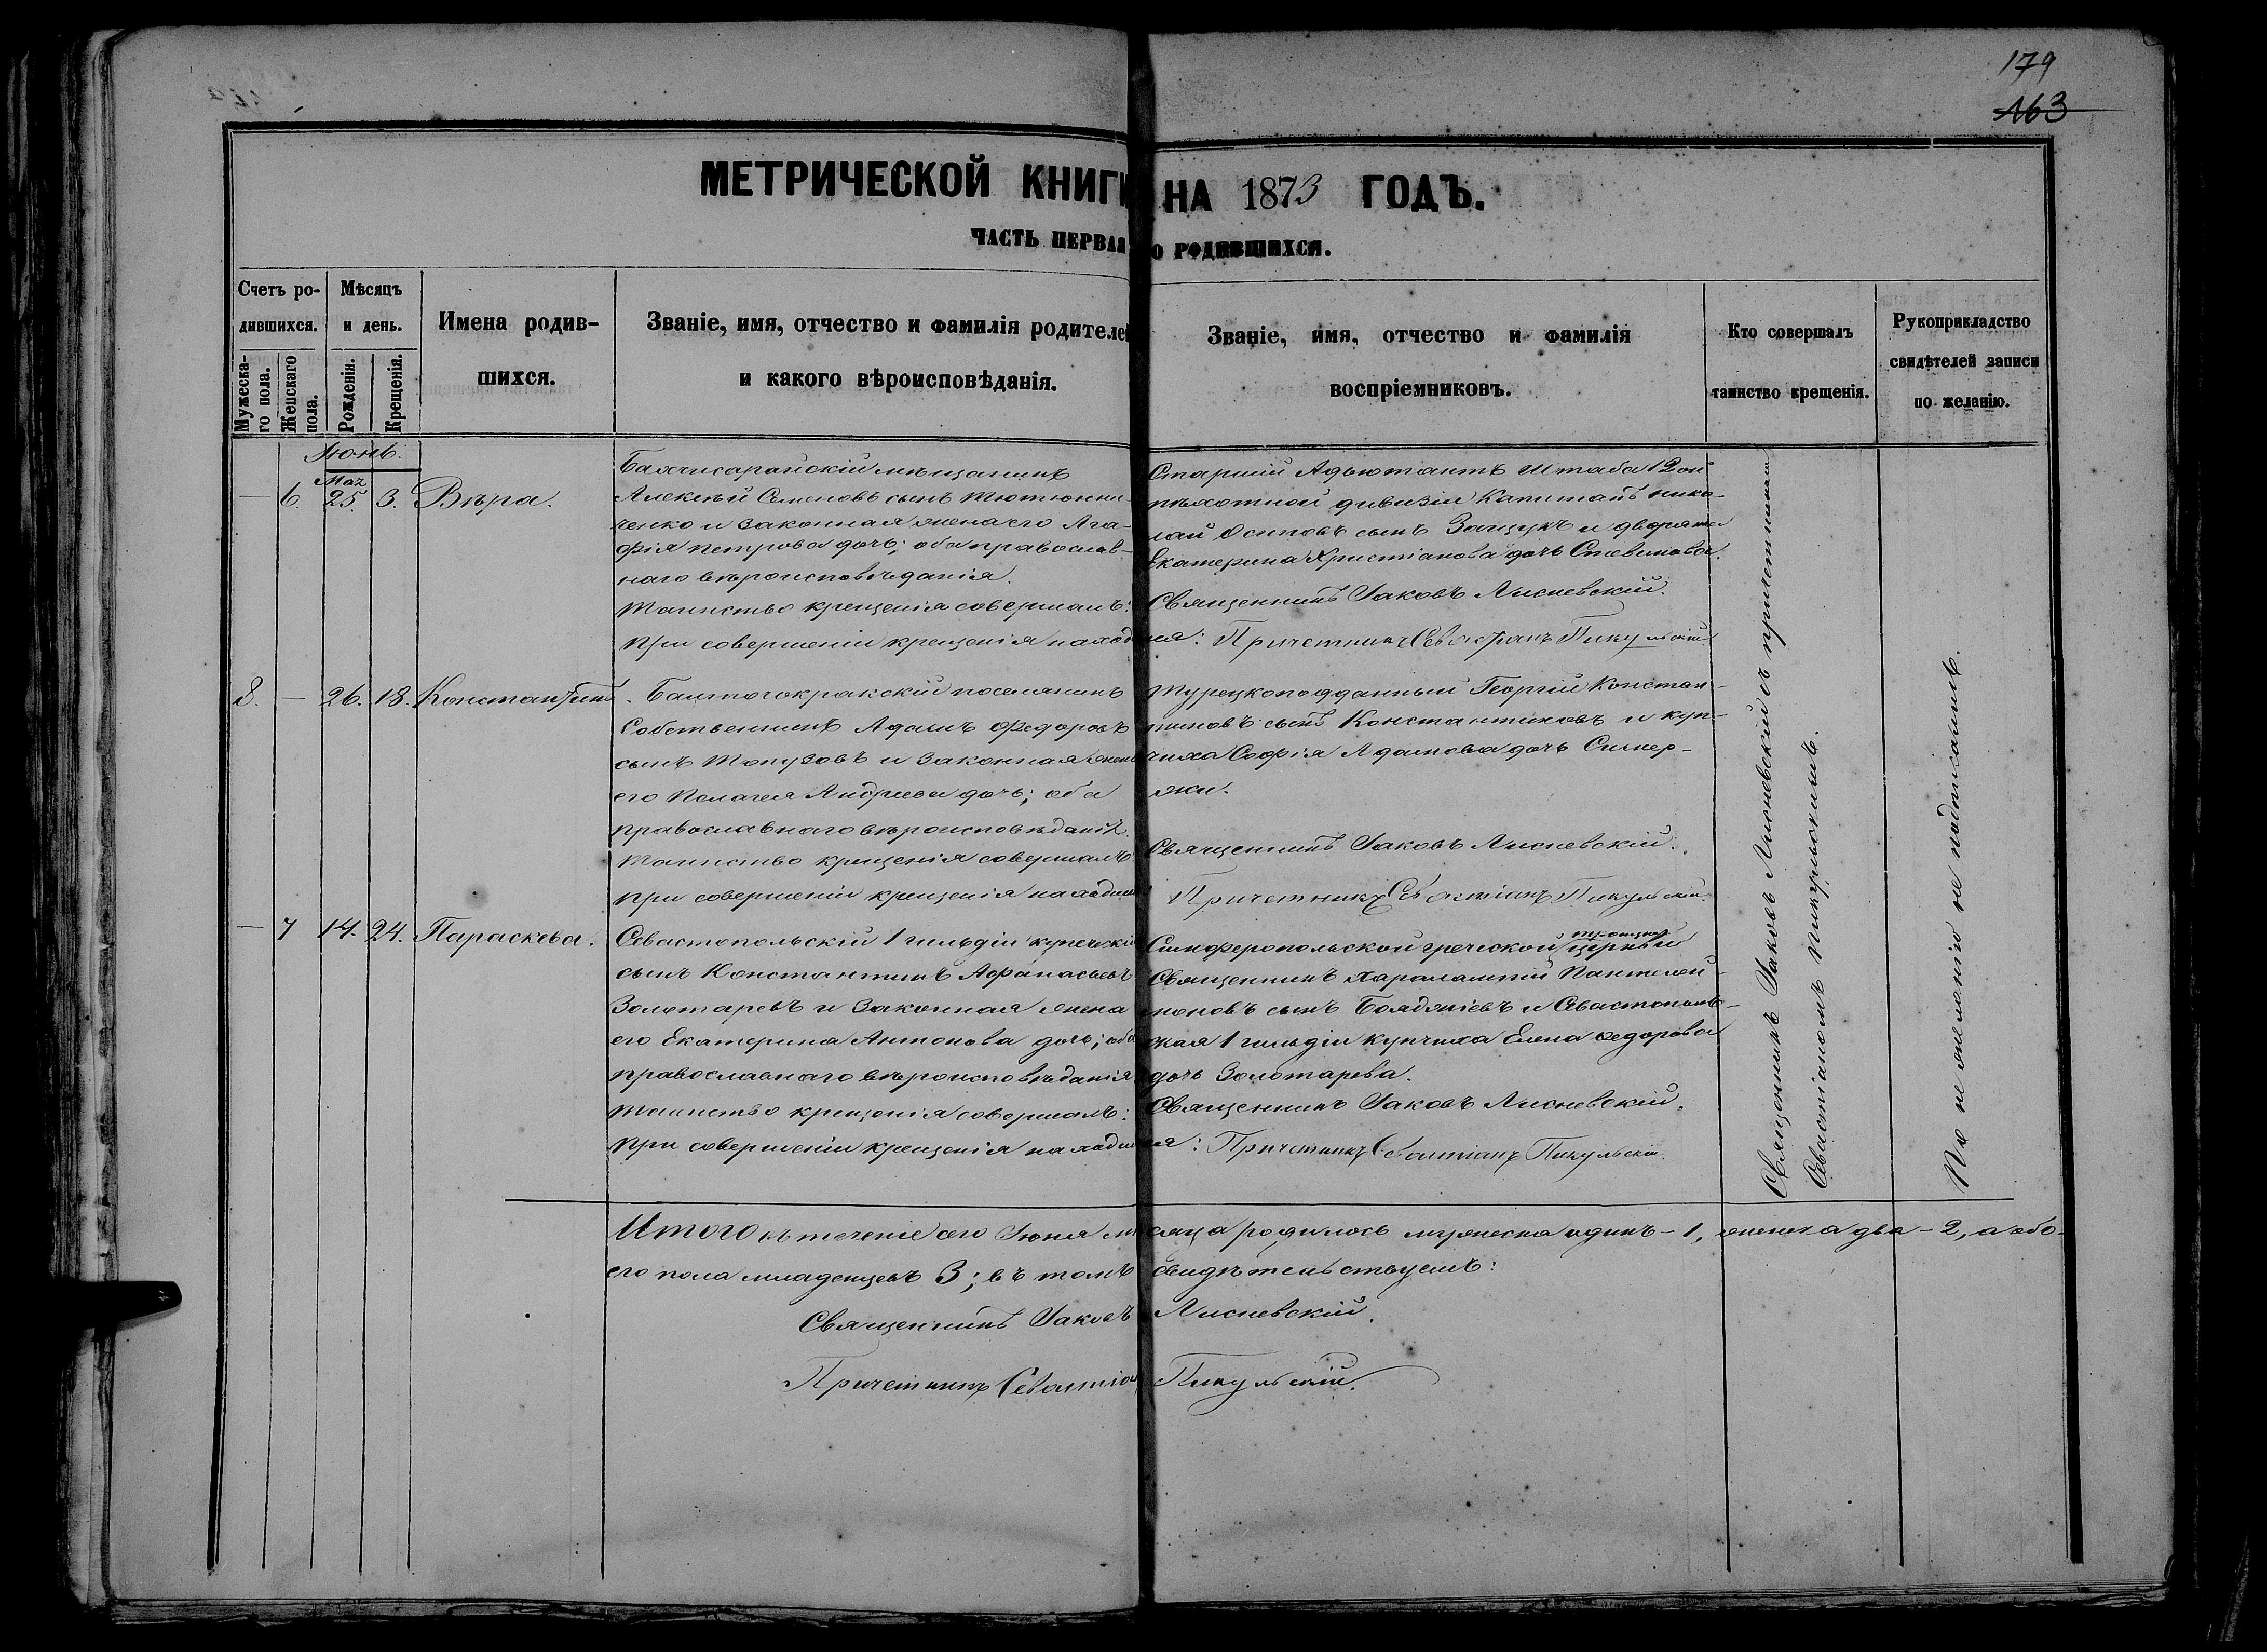 179
163
МЕТРИЧЕСКОЙ КНИГИ НА 1873 ГОДЪ.
ЧАСТЬ ПЕРВАЯ О РОДИВШИХСЯ.
Счетъ родившихся.
Мужескаго пола.
Женскаго пола.
Мѣсяцъ и день.
Рожденія.
Крещенія.
Имена родившихся.
Званіе, имя, отчество и фамилія родителей
и какого вѣроисповѣданія.
Званіе, имя, отчество и фамилія
воспріемниковъ.
Кто совершалъ
таинство крещенія.
Рукоприкладство
свидѣтелей записи
по желанію.
Іюнь.
— 6. Мая 25. 3. Вѣра.
Бахчисарайскій мѣщанинъ
Алексѣй Семеновъ сынъ Тютюнни-
ченко и законная жена его Ага-
фія Петрова дочь; оба православ-
наго вѣроисповѣданія.
Таинство крещенія совершалъ:
При совершеніи крещенія наход
Старшій Адъютантъ Штаба 12ой
пѣхотной дивизіи Капитанъ Нико-
лай Осиповъ сынъ Защукъ и дворянка
Екатерина Христіанова дочь
Священникъ Іаковъ Лисневскій.
ся: Причетникъ Севастіанъ Пикульскій.
8. — 26. 18. Константинъ.
поселянинъ
Собственникъ Адамъ Федоровъ
сынъ Топузовъ и законная жена
его Пелагея Андреева дочь; оба
православнаго вѣроисповѣданія.
Таинство крещенія совершалъ
при совершеніи крещенія находил
Турецкоподданный Георгій Констан-
тиновъ сынъ Константиновъ и куп-
чиха Софія Адамова дочь
Священникъ Іаковъ Лисневскій.
Причетникъ Севастіанъ Пикульскій.
— 7 14. 24. Параскева.
Севастопольскій 1 гильдіи купеческій
сынъ Константинъ Афанасьевъ
Золотаревъ и законная жена
его Екатерина Антонова дочь; оба
православнаго вѣроисповѣданія
Таинство крещенія совершалъ:
При совершеніи крещенія находил
Симферопольской греческой троицкой церкви
Священникъ Харалампій Пантелей-
моновъ сынъ Бояджіевъ и Севастополь-
ская 1 гильдіи купчиха Елена Федорова
дочь Золотарева.
Священникъ Іаковъ Лисневскій.
ся: Причетникъ Севастіанъ Пикульскій.
Священникъ Іаковъ Лисневскій съ причетникомъ
Севастіаномъ Пикульскимъ.
По не желанію не подписались.
Итого въ теченіе сего Іюня мѣсяца родилось мужеска одинъ – 1, женска два – 2, а обо-
его пола младенцевъ 3; въ томъ свидѣтельствуемъ:
Священникъ Іаковъ Лисневскій.
Причетникъ Севастіанъ Пикульскій.